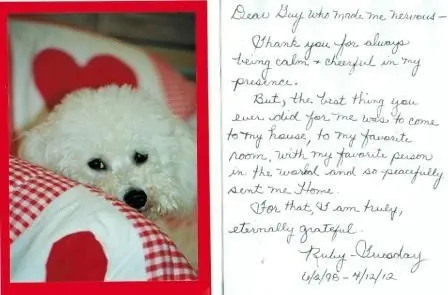 Dear Guy who made me nervous-
Thank you for always
being calm + cheerful in my
presence.
But, the best thing you
ever did for me was to come
to my house, to my favorite
room, with my favorite person
in the world and so peacefully
sent me Home.
For that, I am truly,
eternally grateful.
Ruby-Tuesday
6/2/98 - 4/12/12